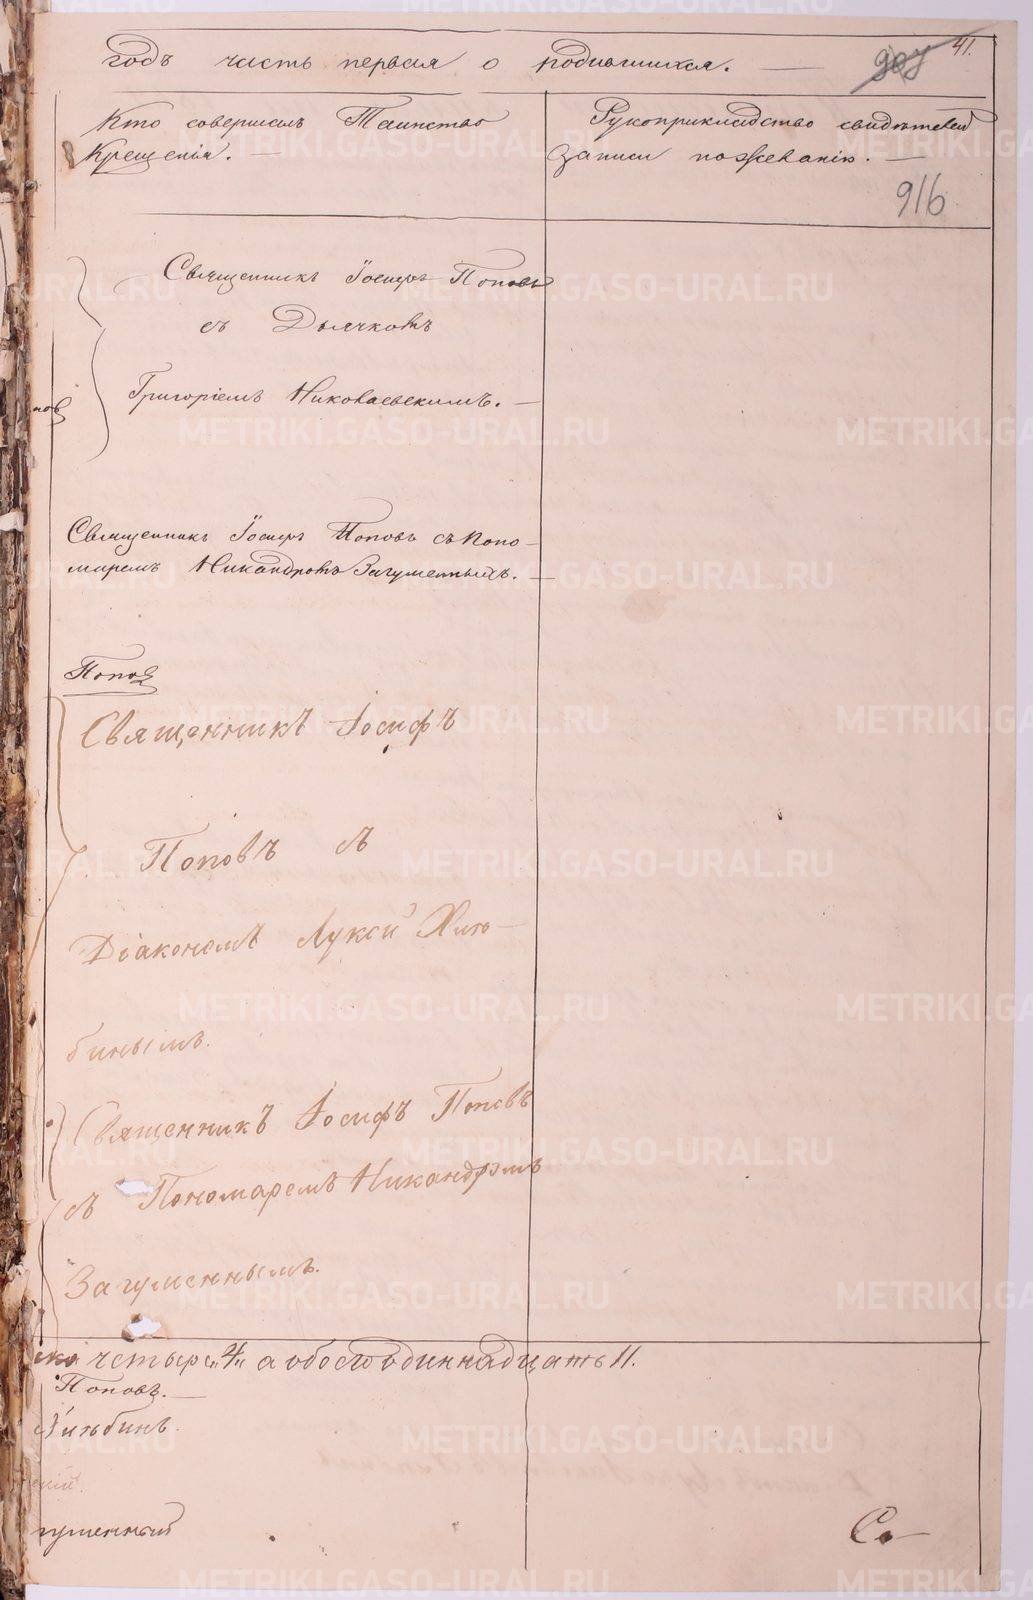 годъ часть первая о родившихся. —
907
41.
Кто совершалъ Таинство
Крещенія. —
Рукоприкладство свидѣтелей
записи по желанію. —
916
Священникъ Іосифъ Поповъ
съ Дьячкомъ
Григоріемъ Николаевскимъ. —
повъ
Священникъ Іосифъ Поповъ съ Поно-
маремъ Никандромъ Загуменныхъ. —
Поповъ
Священникъ Іосифъ
Поповъ съ
Діакономъ Лукой Хлѣ-
бинымъ.
Священникъ Іосифъ Поповъ
съ Пономаремъ Никандромъ
Загуменнымъ.
ска четыре „4„ а обоего одиннадцать 11.
Поповъ. —
Хлѣбинъ.
скій.
гуменный
Св—
METRIKI.GASO-URAL.RU